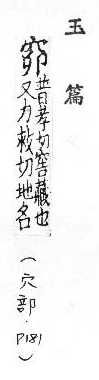 玉篇
窌普孝切窖藏也
又力救切地名
(穴部.P181)